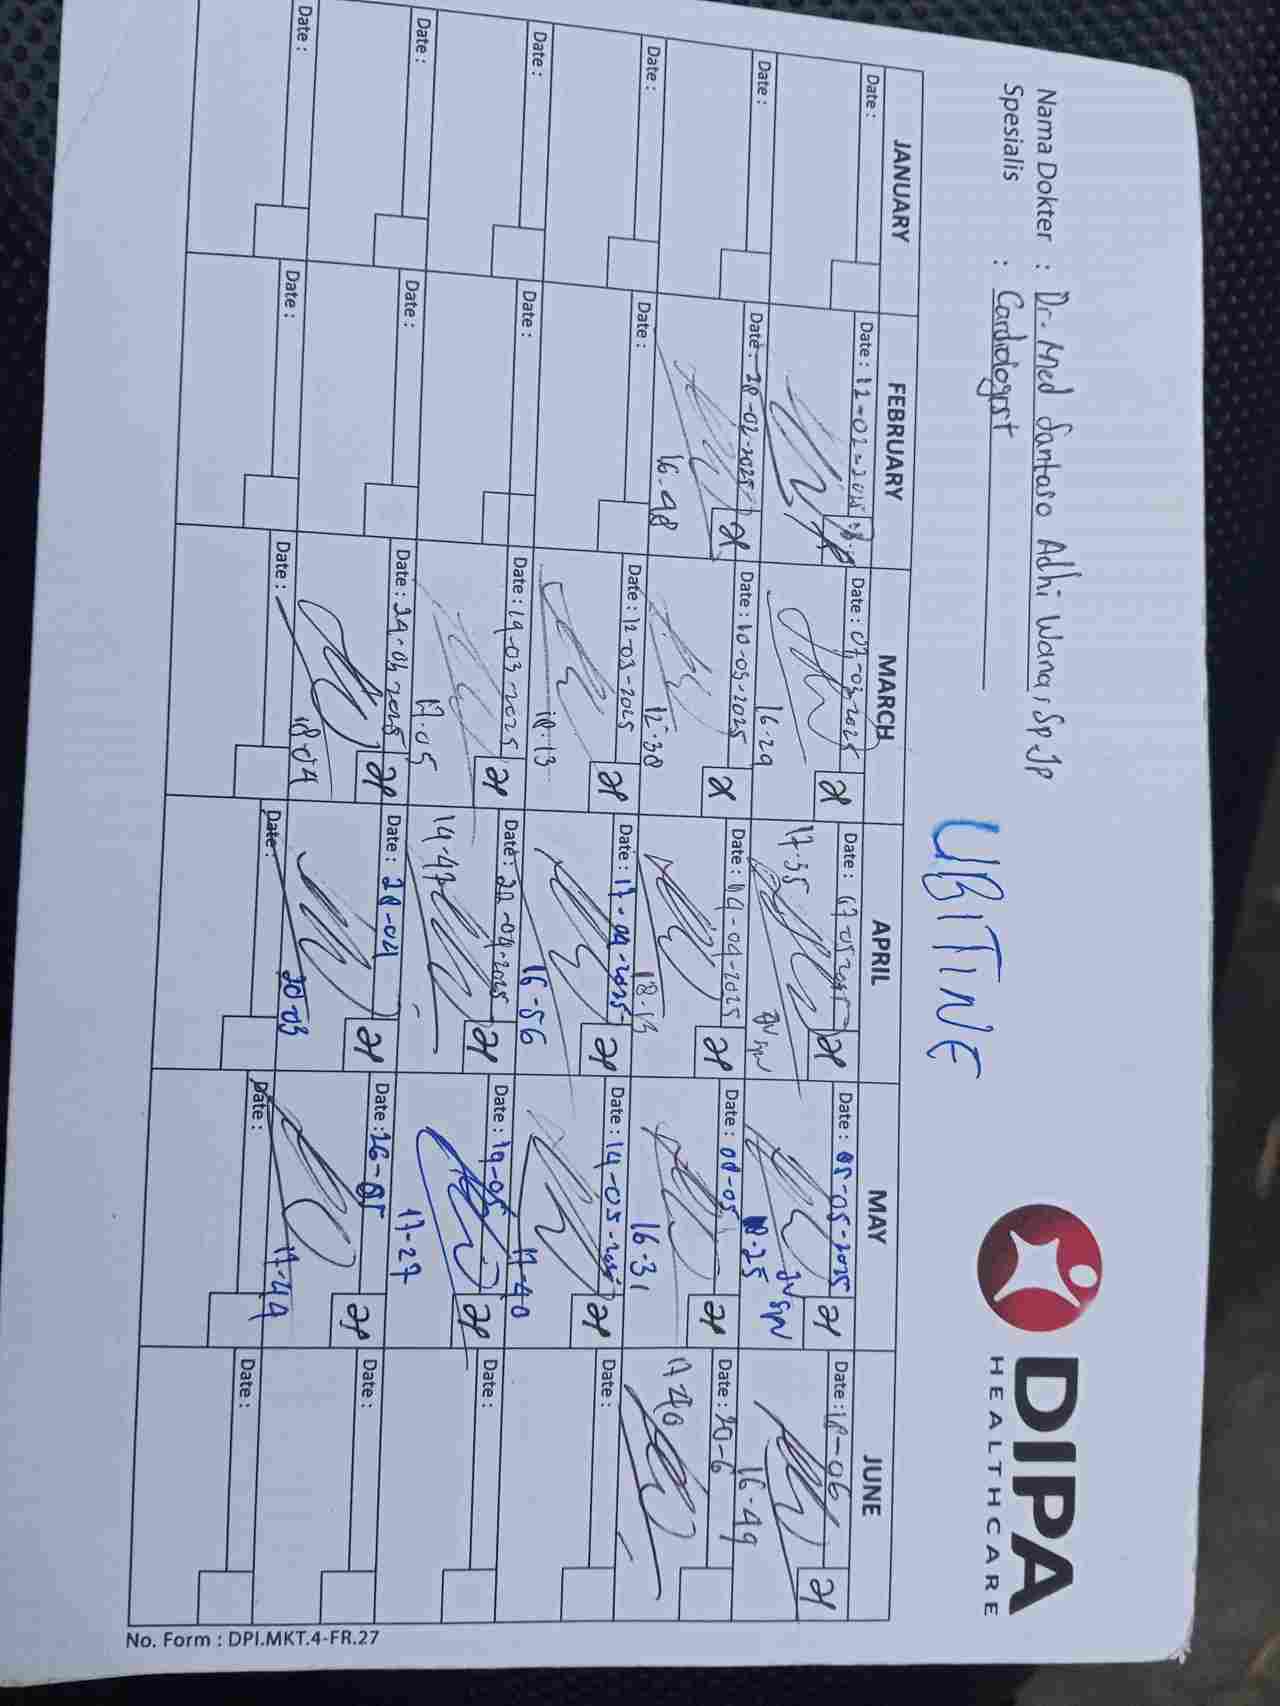 Nama Dokter : Dr. Med Santoso Adhi Wana, SpJp
Spesialis : Cardiologist
UBITINE
DIPA
HEALTHCARE
JANUARY FEBRUARY MARCH APRIL MAY JUNE
Date : Date : 12-02-2025 Date : 07-03-2025 Date : Date : 05-05-2025 Date : 18-06
16-29 17-35 16-49
Date : Date : 28-02-2025 Date : 10-03-2025 Date : 14-04-2025 Date : 08-05 Date : 20-6
16-48 12-38 18-13 16-31 17-40
Date : Date : Date : 12-03-2025 Date : 17-04-2025 Date : 14-05-2025 Date :
18-13 16-56 17-40
Date : Date : Date : 19-03-2025 Date : 22-04-2025 Date : 19-05 Date :
17-05 14-47 17-27
Date : Date : Date : 24-03-2025 Date : 28-04 Date : 26-05 Date :
18-04 20-03 17-44
Date : Date : Date : Date : Date : Date :
No. Form : DPI.MKT.4-FR.27